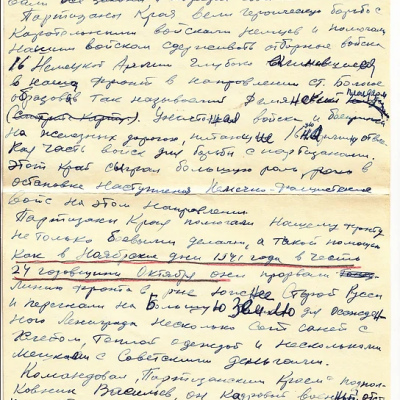 Партизаны Края вели героическую борьбу с
Карательными войсками Немцев и помогали
Нашим войскам сдерживать отборные войска
16 Немецкой Армии глубоко
в наш фронт в направлении ст. Бологое
образовав так называемый
войска и
на железных дорогах, 16 Армию
кая часть войск для борьбы с партизанами.
Этот край сыграл большую роль в
остановке наступления Немечко-фашистских
войс на этом направлении.
Партизаны Края помогали Нашему фронту
не только боевыми делами, а такой помощью
Как в Ноябрьские дни 1941 года в честь
24 годовщины Октября они прорвали
Линию фронта в р-не Старой Руссы
и перегнали на Большую Землю для осажден
ного Ленинграда несколько сот саней с
Хлебом, теплой одеждой и несколькими
мешками с Советскими деньгами.
Командовал "Партизанским Краем" полков
Ковник Васильев, он кадровый